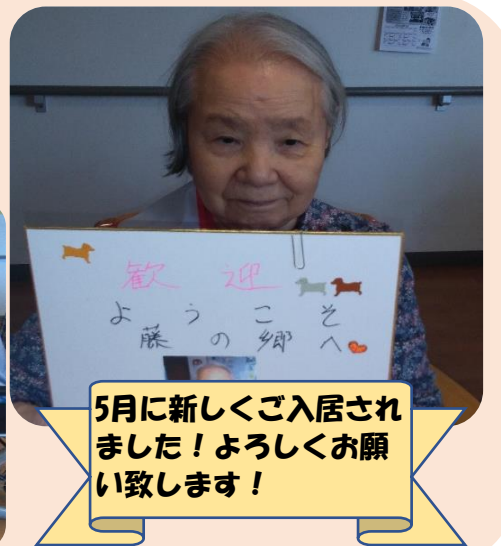 歓迎
ようこそ
藤の郷へ
5月に新しくご入居され
ました！よろしくお願
い致します！